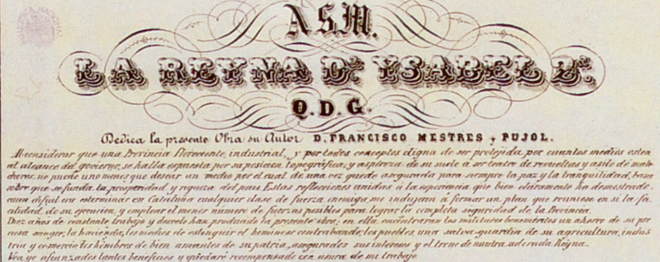 A S.M.
LA REYNA Dª YSABEL 2ª
Q.D.G.
Dedica la presente Obra su Autor D. FRANCISCO MESTRES y PUJOL.
Al considerar que una Provincia floreciente, industrial, y por todos conceptos digna de ser protejida, por cuantos medios esten
al alcance del govierno, se halla expuesta por su posicion topográfica y aspereza de su suelo à ser teatro de revueltas y asilo de malé
no puede uno menos que desear un medio por el cual de una vez quede asegurada para siempre la paz y la tranquilidad, base
sobre que se funda la prosperidad y riqueza del pais. Estas reflecciones unidas à la esperiencia que bien claramente ha demostrado
cuan dificil era esterminar en Cataluña cualquier clase de fuerza enemiga, me indujeron à formar un plan que reuniese en si la fa
cilidad, de su egecucion, y emplear el menor numero de fuerzas posibles para lograr la completa seguridad de la Provincia.
Diez años de constante trabajo y desvelo, han producido la presente obra; en ella encontraran los militares beneméritos un ahorro de su pre
ciosa sangre; la hacienda, los medios de estinguir el contrabando; los pueblos, una salva-guardia de su agricultura, indus
tria y comercio; los hombres de bien amantes de su patria, asegurados sus intereses y el trono de nuestra adorada Reyna.
Vea yo afianzados tantos beneficios y quedaré recompensado con usura de mi trabajo